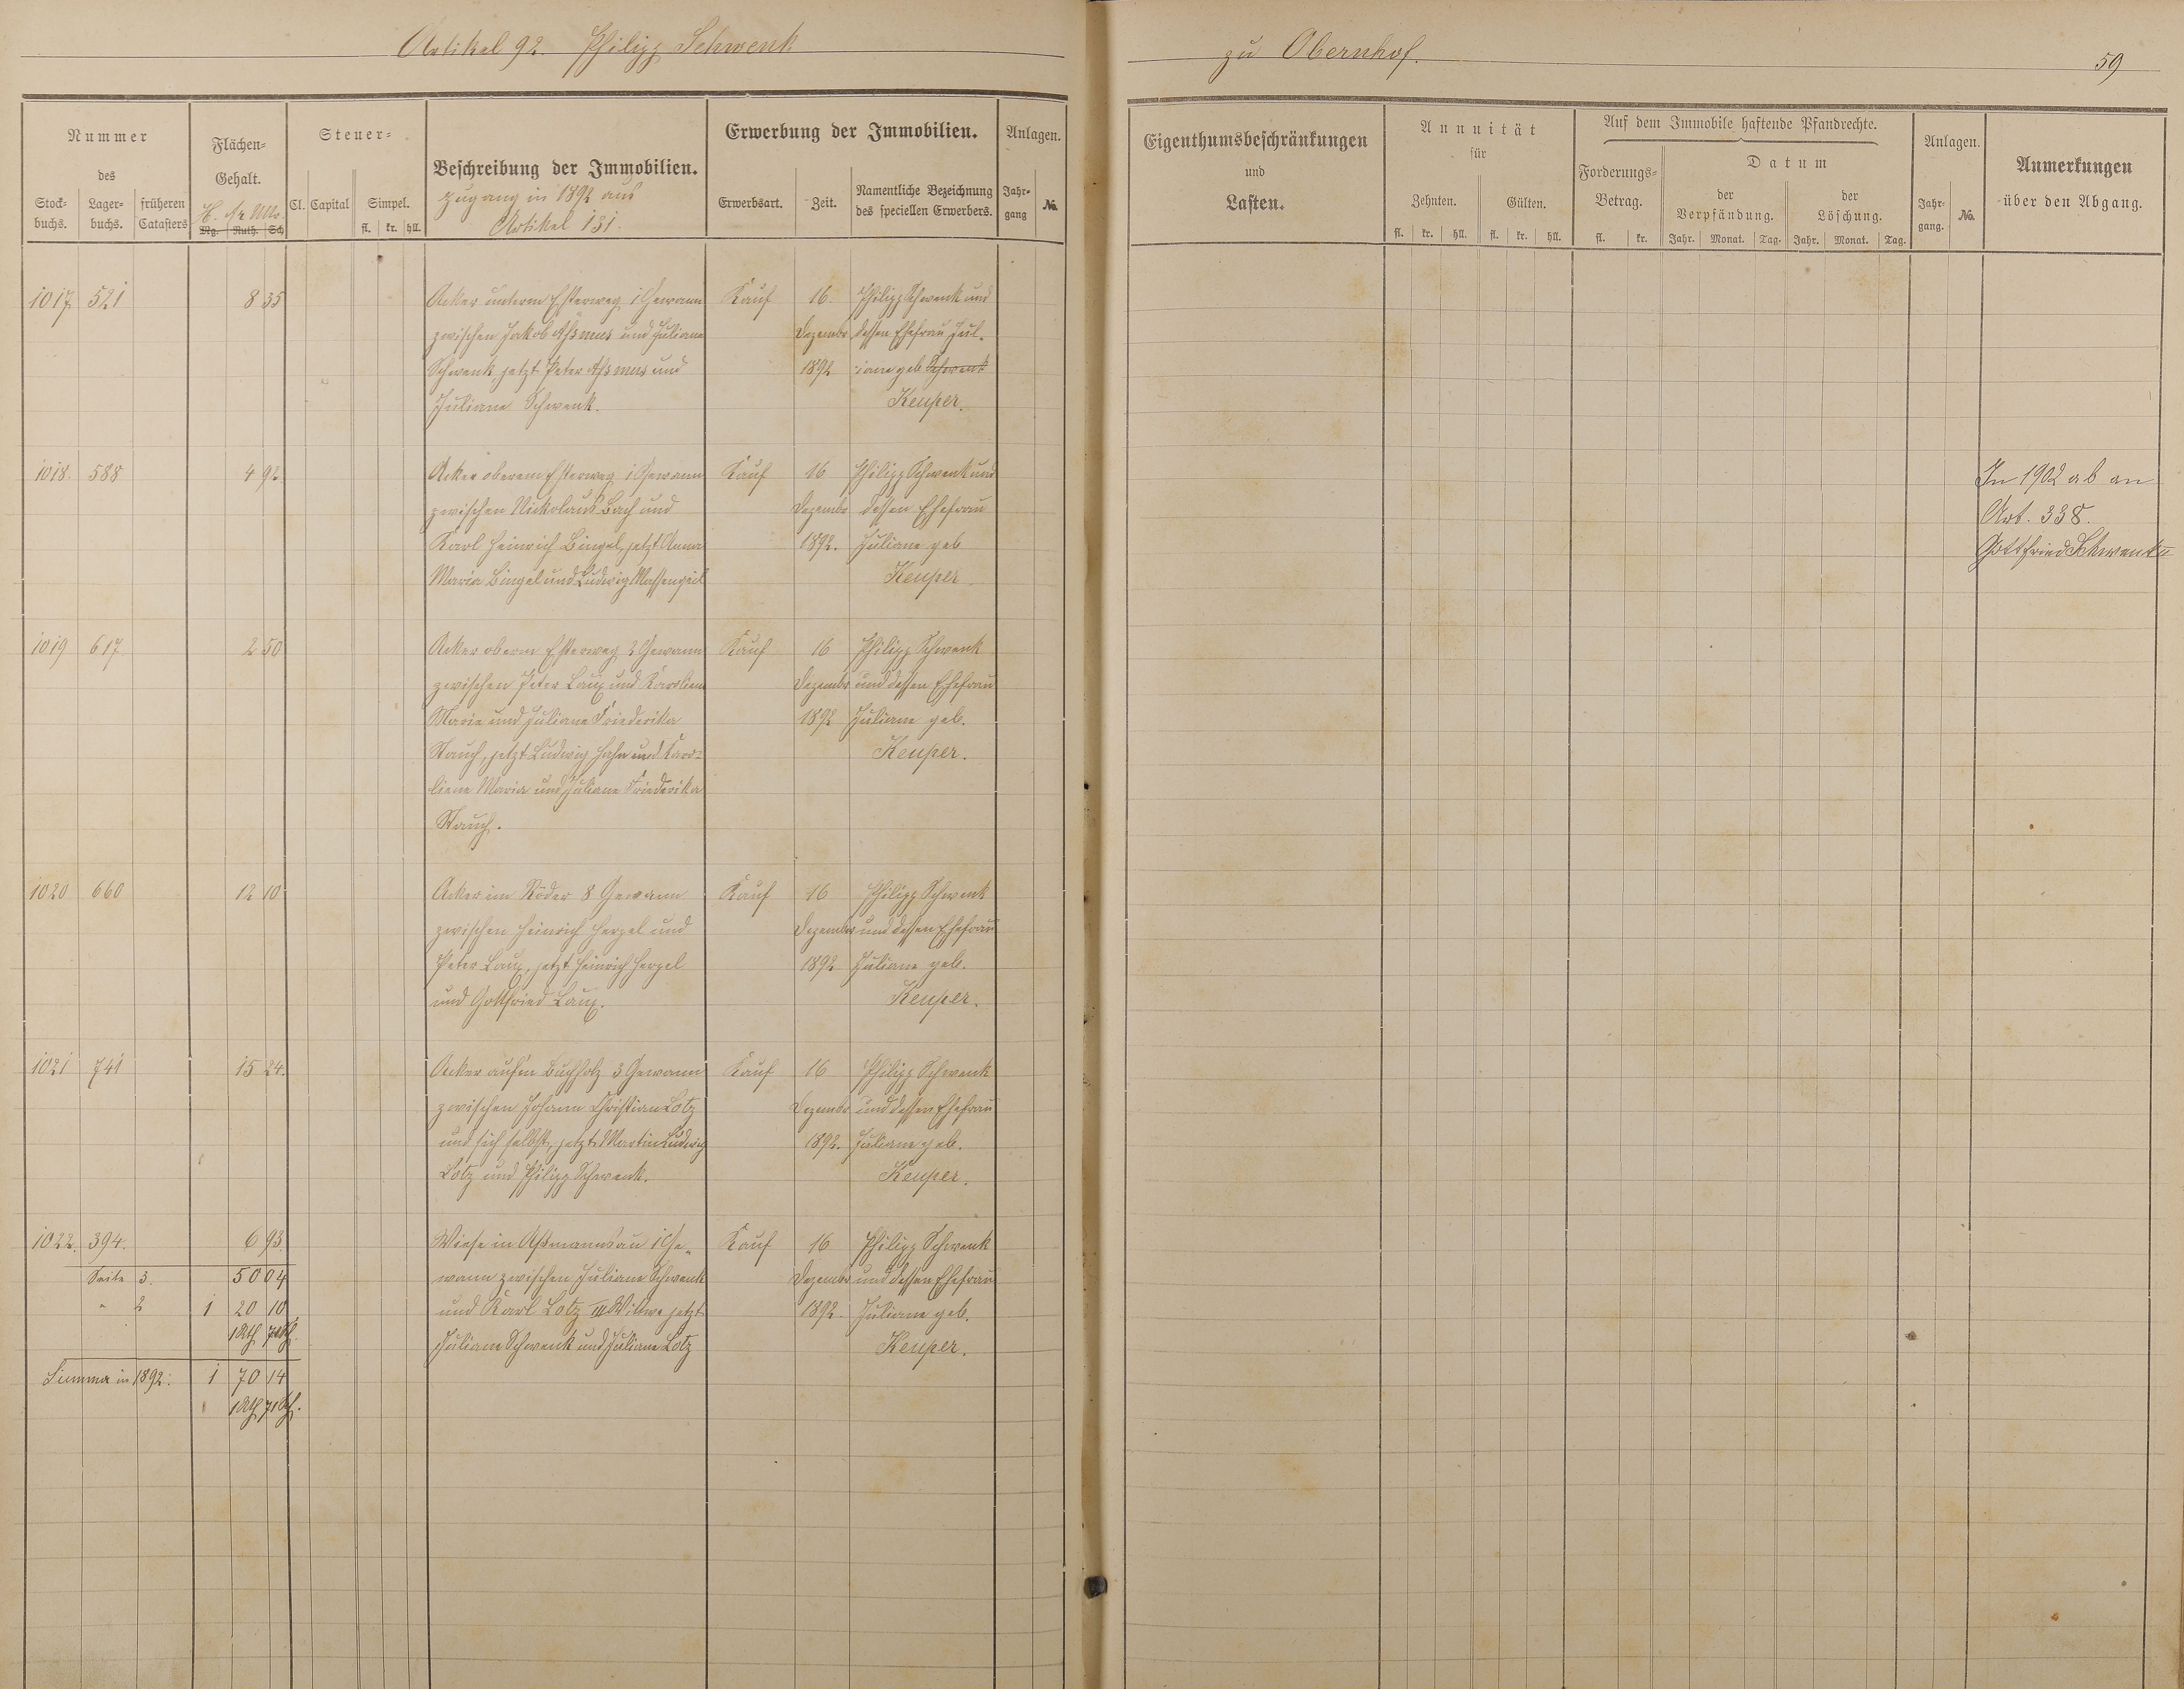 Artikel 92. Philipp Schwenk
zu Obernhof.
59
Nummer
des
Stock-
buchs.
Lager-
buchs.
früheren
Catasters
Flächen-
Gehalt.
H. Ar Mtr.
Mg. Ruth. Sch
Steuer-
Cl. Capital Simpel.
fl. kr. hll.
Beschreibung der Immobilien.
Zugang in 1892 aus
Artikel 131.
Erwerbung der Immobilien.
Erwerbsart. Zeit. Namentliche Bezeichnung
des speciellen Erwerbers.
Anlagen.
Jahr-
gang
No.
1017 521 8 35 Acker unterm Esterweg 1 Gewann Kauf 16. Philipp Schwenk und
zwischen Jakob Aßmus und Juliane Dezembr. dessen Ehefrau Jul-
Schwenk jetzt Peter Aßmus und 1892 iane geb. Schwenk
Juliane Schwenk. Keuper.
1018. 588 4 92 Acker oberem Esterweg 1 Gewann Kauf 16 Philipp Schwenk und
zwischen Nickolaus Bach und Dezembr dessen Ehefrau
Karl Heinrich Bingel, jetzt Anna 1892. Juliane geb
Maria Bingel und Ludwig Massengeil Keuper.
1019 617 2 50 Acker oberm Esterweg 2 Gewann Kauf 16 Philipp Schwenk
zwischen Peter Laux und Karoliene Dezembr und dessen Ehefrau
Marie und Juliane Friederika 1892 Juliane geb.
Stauch, jetzt Ludwig Hahn und Karo- Keuper.
liene Maria und Juliane Friederika
Stauch.
1020 660 12 10 Acker im Röder 8 Gewann Kauf 16 Philipp Schwenk
zwischen Heinrich Hergel und Dezember und dessen Ehefrau
Peter Laux, jetzt Heinrich Hergel 1892 Juliane geb.
und Gottfried Laux. Keuper.
1021 741 15 24. Acker auf'm Buchholz 3 Gewann Kauf 16 Philipp Schwenk
zwischen Johann Christian Lotz Dezembr und dessen Ehefrau
und sich selbst, jetzt Martin Ludwig 1892. Juliane geb.
Lotz und Philipp Schwenk. Keuper.
1022. 394. 6 93. Wiese in Aßmannsau 1 Ge- Kauf 16 Philipp Schwenk
Seite 3. 50 04 wann zwischen Juliane Schwenk Dezembr und dessen Ehefrau
" 2 1 20 10 und Karl Lotz III Wittwe jetzt 1892. Juliane geb.
1 Rth 71 Sch. Juliane Schwenk und Juliane Lotz Keuper.
Summa in 1892: 1 70 14
1 Rth 71 Sch.
Eigenthumsbeschränkungen
und
Lasten.
Annuität
für
Zehnten. Gülten.
fl. kr. hll. fl. kr. hll.
Auf dem Immobile haftende Pfandrechte.
Forderungs-
Betrag.
fl. kr.
Datum
der
Verpfändung.
Jahr. Monat. Tag.
der
Löschung.
Jahr. Monat. Tag.
Anlagen.
Jahr-
gang.
No.
Anmerkungen
über den Abgang.
In 1902 ab an
Art. 338.
Gottfried Schwenk II